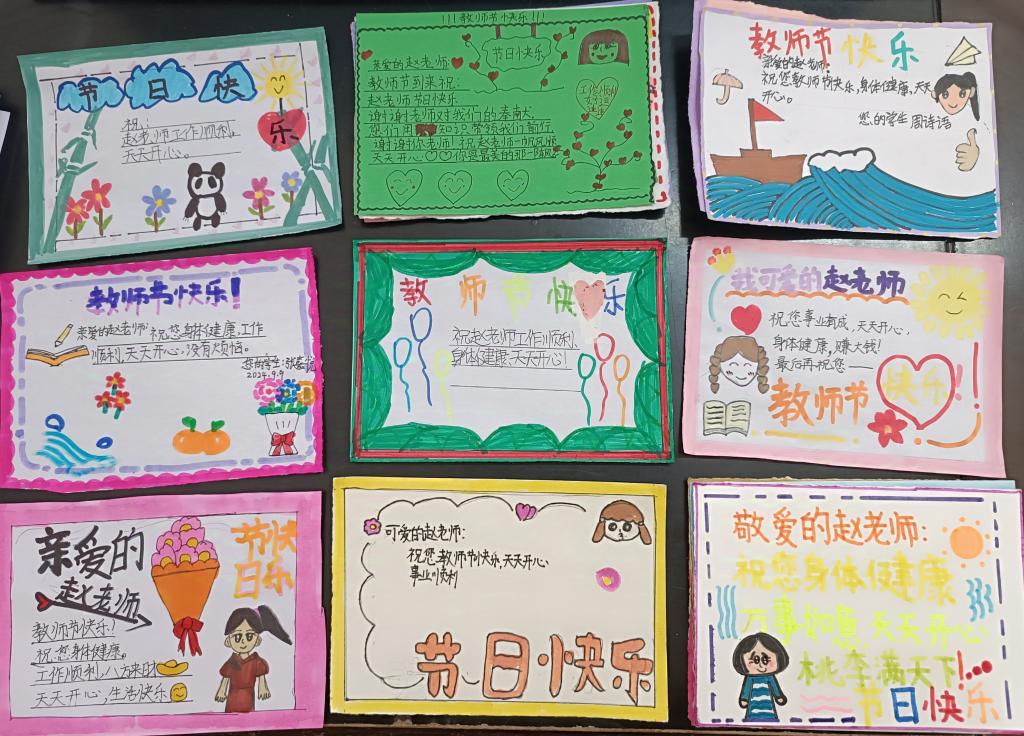 节日快
乐
祝：
赵老师工作顺利，
天天开心。
!!!教师节快乐!!!
节日快乐
亲爱的赵老师：
教师节到来祝：
赵老师节日快乐
谢谢老师对我们的奉献，
您们用知识带领我们前行
谢谢你老师！祝赵老师一帆风顺
天天开心♡♡你是最美的那一
工作顺利
教师节快乐
亲爱的赵老师，
祝您教师节快乐，身体健康，天天
开心。
您的学生 周诗语
教师节快乐！
亲爱的赵老师：祝您身体健康，工作
顺利，天天开心，没有烦恼。
您的学生：张
2024.9.9
教师节快乐
祝赵老师工作顺利、
身体健康、天天开心！
我可爱的赵老师
祝您事业有成，天天开心，
身体健康，赚大钱！
最后再祝您——
教师节
快乐！
亲爱的
赵老师
节快
日乐
教师节快乐！
祝您身体健康。
工作顺利，八方来财
天天开心，生活快乐
可爱的赵老师：
祝您教师节快乐，天天开心、
事业顺利
节日快乐
敬爱的赵老师：
祝您身体健康
万事如意 天天开心
桃李满天下！
节日快乐